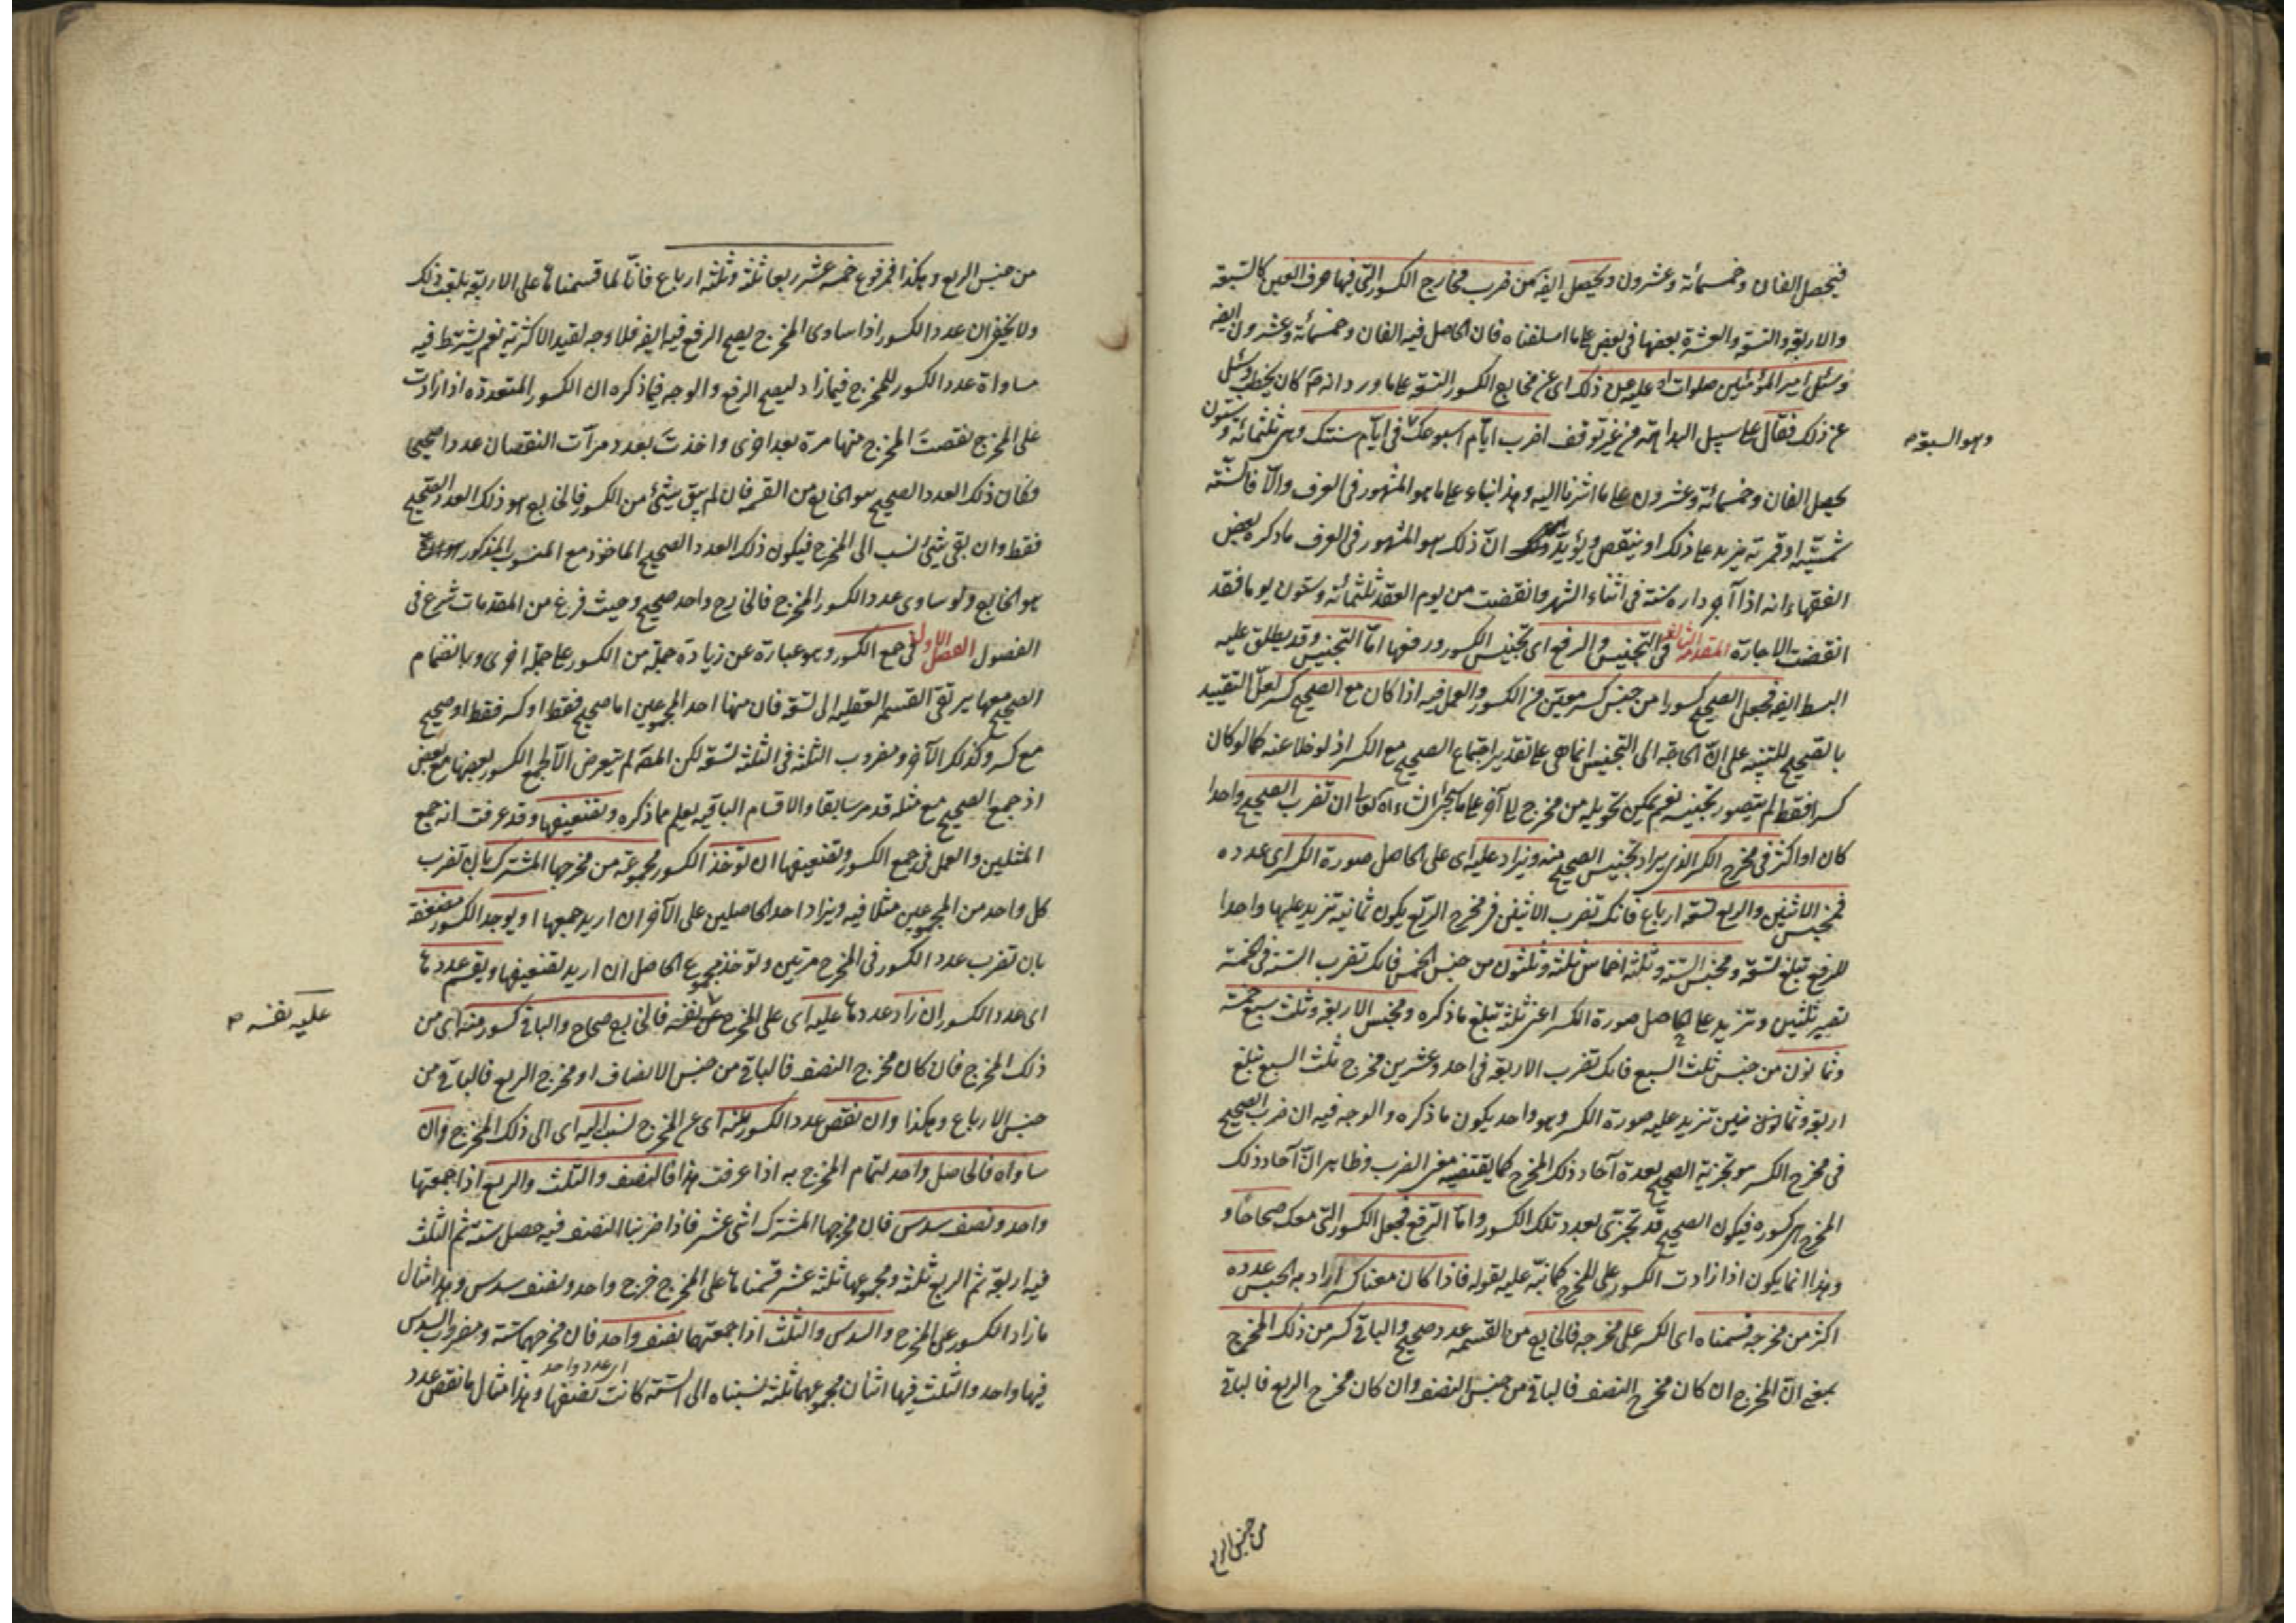 فيحصل الفان وخمسمائة وعشرون ويحصل ايضه من ضرب مخارج الكسور التى فيها حرف العين كالسبعة
والاربعة والتسعة والعشرة بعضها فى بعض على ما اسلفناه فان الحاصل فيه الفان وخمسمائة وعشرون ايضه
وسئل امير المؤمنين صلوات الله عليه عن ذلك اى عن مخارج الكسور التسعة على ما ورد انه كان يخطب وسئل
عن ذلك فقال على سبيل البداهة من غير توقف اضرب ايام اسبوعك فى ايام سنتك وهى ثلثمائة وستون
وهو السبعة
يحصل الفان وخمسمائة وعشرون على ما اشرنا اليه وهذا بناء على ما هو المشهور فى العرف والا فالسنة
شمسية او قمرية يزيد على ذلك او ينقص ويؤيد ان ذلك هو المشهور فى العرف ما ذكره بعض
الفقهاء انه اذا آجر داره سنة فى اثناء الشهر وانقضت من يوم العقد ثلثمائة وستون يوما فقد
انقضت الاجارة المقدمة الثالثة فى التجنيس والرفع اى تجنيس الكسور ورفعها اما التجنيس وقد يطلق عليه
البسط ايضه فجعل الصحيح كسورا من جنس كسر معين من الكسور والعمل فيه اذا كان مع الصحيح كسر لعل التقييد
بالصحيح للتنبيه على ان الحاجة الى التجنيس انما هى على تقدير اجتماع الصحيح مع الكسر اذ لو خلا عنه كما لو كان
كسرا فقط لم يتصور تجنيسه نعم يمكن تحويله من مخرج الى آخر على ما سيجئ ان تضرب الصحيح واحدا
كان او اكثر فى مخرج الكسر الذى يراد تجنيس الصحيح منه ويزاد عليه اى على الحاصل صورة الكسر اى عدده
فمجنس الاثنين والربع تسعة ارباع فانك تضرب الاثنين فى مخرج الربع يكون ثمانية تزيد عليها واحدا
للربع تبلغ تسعة ومجنس الستة وثلثة اخماس ثلثة وثلثون من جنس الخمس فانك تضرب الستة فى الخمسة
تصير ثلثين وتزيد على الحاصل صورة الكسر اعنى ثلثة تبلغ ما ذكره ومجنس الاربعة وثلث سبع خمسة
وثمانون من جنس ثلث السبع فانك تضرب الاربعة فى احد وعشرين مخرج ثلث السبع تبلغ
اربعة وثمانون فحين تزيد عليه صورة الكسر وهو واحد يكون ما ذكره والوجه فيه ان ضرب الصحيح
فى مخرج الكسر هو تجزية الصحيح بعدة آحاد ذلك المخرج كما يقتضيه معنى الضرب وظاهر ان آحاد ذلك
المخرج هى كسوره فيكون الصحيح قد تجزى بعدد تلك الكسور واما الرفع فجعل الكسور التى معك صحاحا و
وهذا انما يكون اذا زادت الكسور على المخرج كما نبه عليه بقوله فاذا كان معنا كسر اراد به الجنس عدده
اكثر من مخرجه قسمناه اى الكسر على مخرجه فالخارج من القسمة عدد صحيح والباقى كسر من ذلك المخرج
بمعنى ان المخرج ان كان مخرج النصف فالباقى من جنس النصف وان كان مخرج الربع فالباقى
من جنس الربع
من جنس الربع وهكذا فمرفوع خمسة عشر ربعا ثلثة وثلثة ارباع فانا لما قسمناها على الاربعة بلغت ذلك
ولا يخفى ان عدد الكسور اذا ساوى المخرج يصح الرفع فيه ايضه فلا وجه لقيد الاكثرية نعم يشترط فيه
مساواة عدد الكسور للمخرج فما زاد ليصح الرفع والوجه فيما ذكره ان الكسور المتعددة اذا زادت
على المخرج نقصت المخرج منها مرة بعد اخرى واخذت بعدد مرات النقصان عددا صحيحا
وكان ذلك العدد الصحيح هو الخارج من القسمة فان لم يبق شئ من الكسور فالخارج هو ذلك العدد الصحيح
فقط وان بقى شئ نسب الى المخرج فيكون ذلك العدد الصحيح الماخوذ مع المنسوب المذكور
هو الخارج ولو ساوى عدد الكسور المخرج فالخارج واحد صحيح وحيث فرغ من المقدمات شرع فى
الفصول الفصل الاول فى جمع الكسور وهو عبارة عن زيادة جملة من الكسور على جملة اخرى وبانضمام
الصحيح معها يرتقى القسمة العقلية الى تسعة فان منها احد المجموعين اما صحيح فقط او كسر فقط او صحيح
مع كسر وكذلك الآخر ومضروب الثلثة فى الثلثة تسعة لكن المصه لم يتعرض الا لجمع الكسور بعضها مع بعض
اذ جمع الصحيح مع مثله قد مر سابقا والاقسام الباقية يعلم مما ذكره وتضعيفها وقد عرفت انه جمع
المثلين والعمل فى جمع الكسور وتضعيفها ان تؤخذ الكسور مجموعة من مخرجها المشترك بان تضرب
كل واحد من المجموعين مثلا فيه ويزاد احد الحاصلين على الآخر ان اريد جمعها او يوجد الكسور مضعفة
بان تضرب عدد الكسور فى المخرج مرتين وتؤخذ مجموع الحاصل ان اريد تضعيفها ويقسم عددها
اى عدد الكسور ان زاد عددها عليه اى على المخرج نفسه فالخارج صحاح والباقى كسور منه اى من
عليه نفسه
ذلك المخرج فان كان مخرج النصف فالباقى من جنس الانصاف او مخرج الربع فالباقى من
جنس الارباع وهكذا وان نقص عدد الكسور عنه اى عن المخرج نسب اليه اى الى ذلك المخرج وان
ساواه فالحاصل واحد لتمام المخرج به اذا عرفت هذا فالنصف والثلث والربع اذا جمعتها
واحد ونصف سدس فان مخرجها المشترك اثنى عشر فاذا ضربنا النصف فيه حصل ستة ثم الثلث
فيه اربعة ثم الربع ثلثة ومجموعها ثلثة عشر قسمناها على المخرج خرج واحد ونصف سدس وهذا مثال
ما زاد الكسور على المخرج والسدس والثلث اذا جمعتهما نصف واحد فان مخرجهما ستة ومضروب السدس
اى عدد واحد
فيها واحد والثلث فيها اثنان مجموعهما ثلثة نسبناه الى الستة كانت نصفها وهذا مثال ما نقص عدد